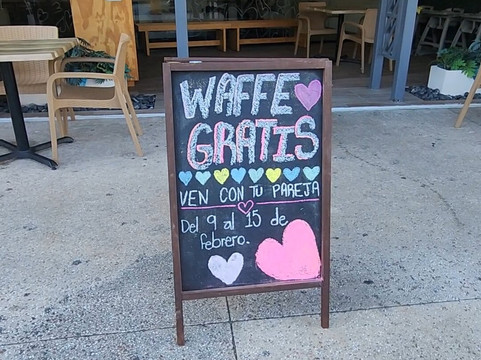 WAFFE
GRATIS
VEN CON TU PAREJA
Del 9 al 15 de
febrero.